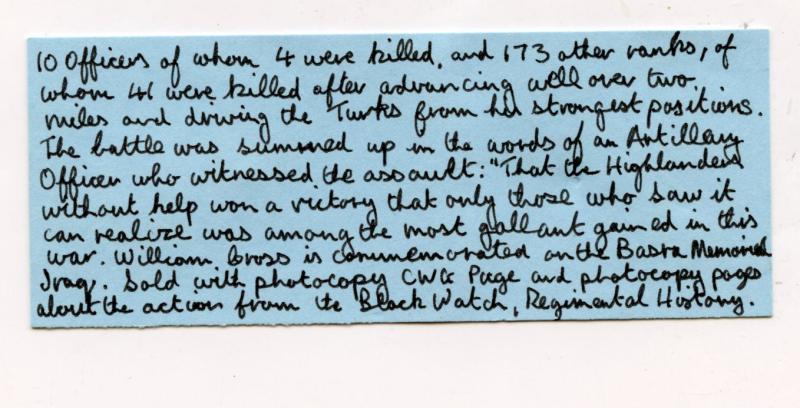 10 Officers of whom 4 were killed, and 173 other ranks, of
whom 41 were killed after advancing well over two
miles and driving the Turks from his strongest positions.
The battle was summed up in the words of an Artillery
Officer who witnessed the assault: "That the Highlanders
without help won a victory that only those who saw it
can realize was among the most gallant gained in this
war. William Cross is commemorated on the Basra Memorial
Iraq. Sold with photocopy CWG Page and photocopy pages
about the action from the Black Watch, Regimental History.